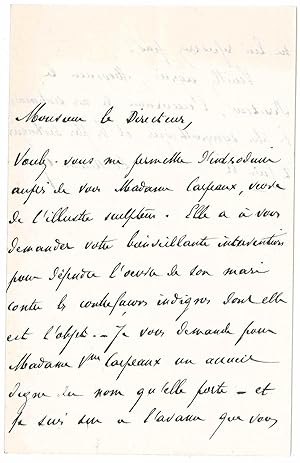 Monsieur le Directeur,
Voulez-vous me permettre d'introduire
auprès de vous Madame Carpeaux, veuve
de l'illustre sculpteur. Elle a à vous
demander votre bienveillante intervention
pour défendre l'œuvre de son mari
contre les contrefaçons indignes dont elle
est l'objet. – Je vous demande pour
Madame Vve Carpeaux un accueil
digne du nom qu'elle porte – et
je suis sûr à l'avance que vous